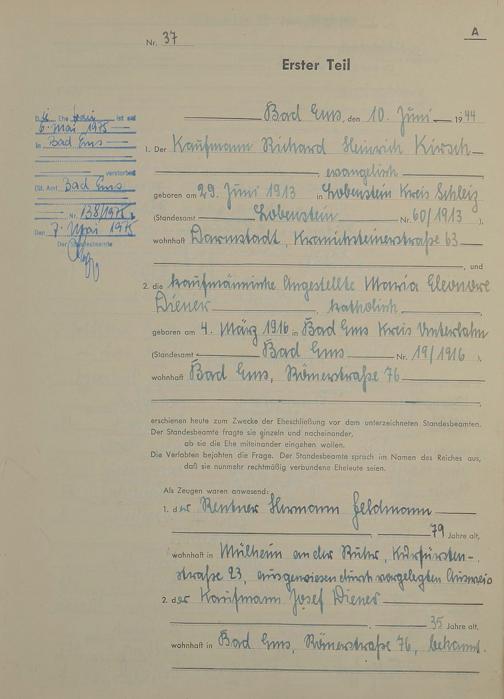 A
Nr. 37
Erster Teil
Bad Ems, den 10. Juni 1944
1. Der Kaufmann Richard Heinrich Kirsch
evangelisch
geboren am 29. Juni 1913 in Lobenstein Kreis Schleiz
(Standesamt Lobenstein Nr. 60/1913),
wohnhaft Darmstadt, Kranichsteinerstraße 63
, und
2. die kaufmännische Angestellte Maria Eleonore
Diener katholisch
geboren am 4. März 1916 in Bad Ems Kreis Unterlahn
(Standesamt Bad Ems Nr. 19/1916),
wohnhaft Bad Ems, Römerstraße 76
erschienen heute zum Zwecke der Eheschließung vor dem unterzeichneten Standesbeamten.
Der Standesbeamte fragte sie einzeln und nacheinander,
ob sie die Ehe miteinander eingehen wollen.
Die Verlobten bejahten die Frage. Der Standesbeamte sprach im Namen des Reiches aus,
daß sie nunmehr rechtmäßig verbundene Eheleute seien.
Als Zeugen waren anwesend:
1. der Rentner Hermann Feldmann
79 Jahre alt,
wohnhaft in Mülheim an der Ruhr, Kurfürsten-
straße 23, ausgewiesen durch vorgelegten Ausweis
2. der Kaufmann Josef Diener
35 Jahre alt,
wohnhaft in Bad Ems, Römerstraße 76, bekannt.
Ehefrau ist am
6. Mai 1975
in Bad Ems
verstorben
(St. Amt Bad Ems
Nr. 138/1975)
Den 7. Mai 1975
Der Standesbeamte